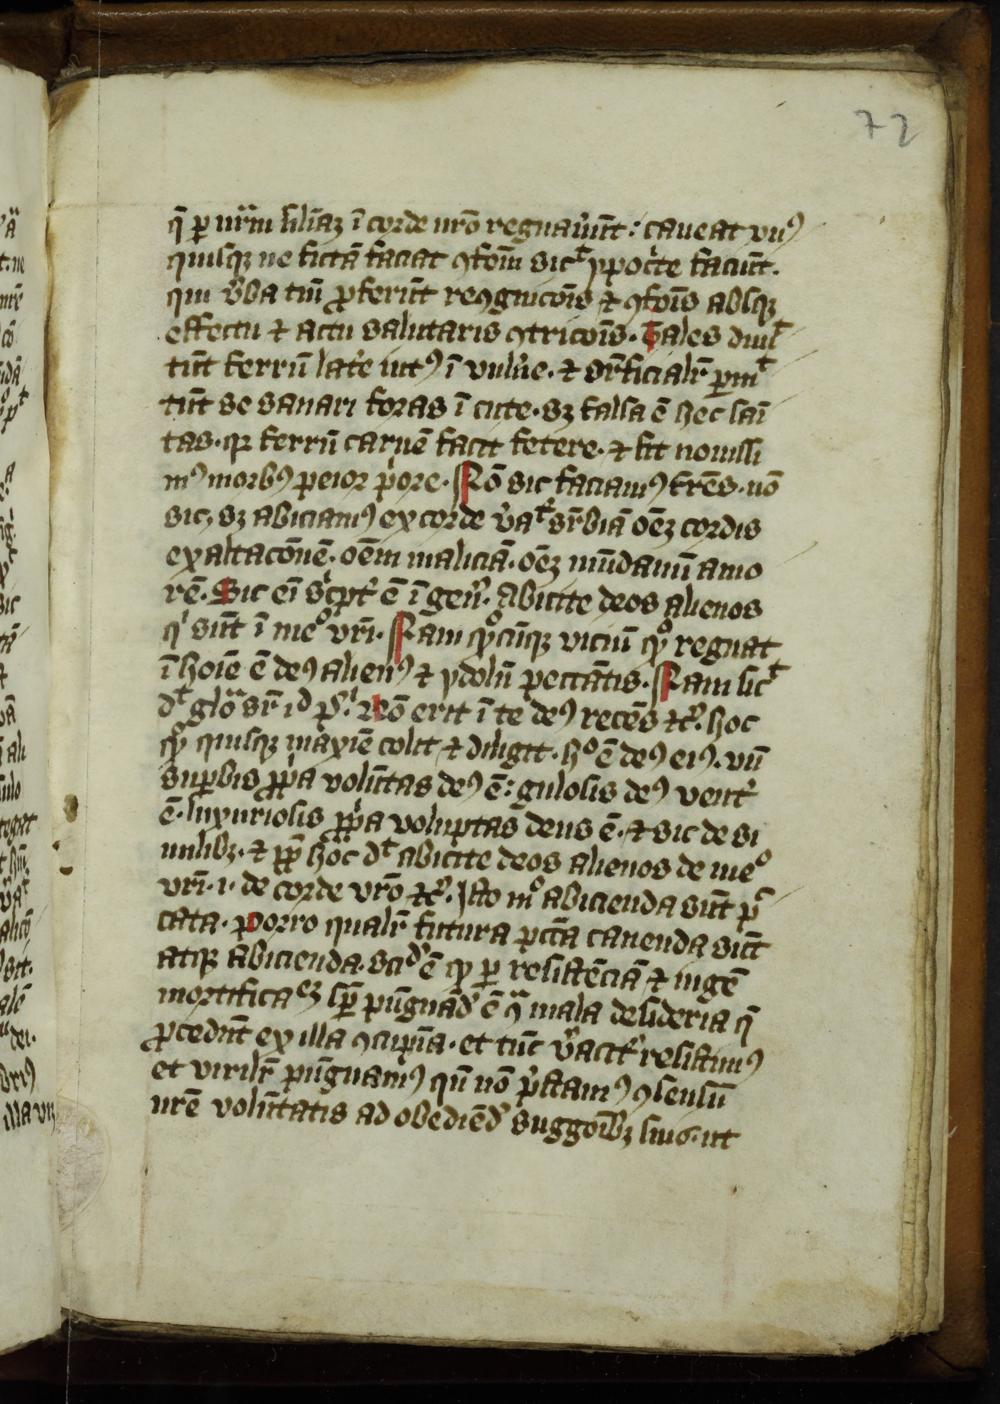 72
q̄ ꝑ nr̄m silīaꝫ ī corde nrō regnaůūt: caueat vnꝰ
quisqꝫ ne fictā faciat ꝯfom̄ sicᵗ ypocͥte faciūt.
qui v̓ba tm̄ ꝓferūt reꝯgnicōis ⁊ ꝯfōis absqꝫ
effectu ⁊ actu salutaris ꝯtricōis. Tales dimiᵗ
tūt ferrū late̓ intꝰ ī vuln̓e. ⁊ sr̄ficialr̄ ꝑmiᵗ
tūt se sanari foras ī cute. sꝫ falsa ē hec saī
tas. qꝛ ferrū carnē facit fetere. ⁊ fit nouissi
mꝰ morbꝰ peior pͥore. Nō sic faciamꝰ fr̄es. nō
sic, sꝫ abiciamꝰ ex corde v̓aᵗ sr̄biā oēꝫ cordis
exaltacōnē. oēm maliciā. oēꝫ mūdanū amo
rē. Sic eī scͥptͬ ē ī gen̓. Abicite deos alienos
qͥ sūt ī meᵒ vrī. Nam qᵒcūqꝫ viciū qᵒ regnat
ī hoīe ē deꝰ alienꝰ ⁊ ydolū peccātis. Nam sicᵗ
dᵗ glōᵃ sr̄ id pˢ. Nō erit ī te deꝰ recēs ⁊cͬ. hoc
qᵒ quisqꝫ maxīe colit ⁊ diligit. hᵒ ē deꝰ eiꝰ. vn̄
suꝑbis ꝓpͥa volūtas deꝰ ē: gulosis deꝰ ventͬ
ē. luxuriosis ꝓpͥa voluptas deus ē. ⁊ sic de si
milibꝫ. ⁊ ꝓpͭ hoc dᵗ abicite deos alienos de meᵒ
vrī. i. de corde vrō ⁊cͬ. Isto mᵒ abicienda sūt pᶜ
cata. Porro qualr̄ futura pctā cauenda sūt
atqꝫ abicienda. sciᵈ ē qᵒ ꝑ resistēciā ⁊ iugē
mortificaᵉꝫ sꝑ pūgnād̓ ē ꝯᵃ mala desideria q̄
ꝓcedūt ex illa ꝯcupīa. et tūc v̓acitͬ resistimꝰ
et virilr̄ pūgnamꝰ qn̄ nō p̄stamꝰ ꝯsensū
nrē volūtatis ad obediēd̓ suggōibꝫ suis. ut